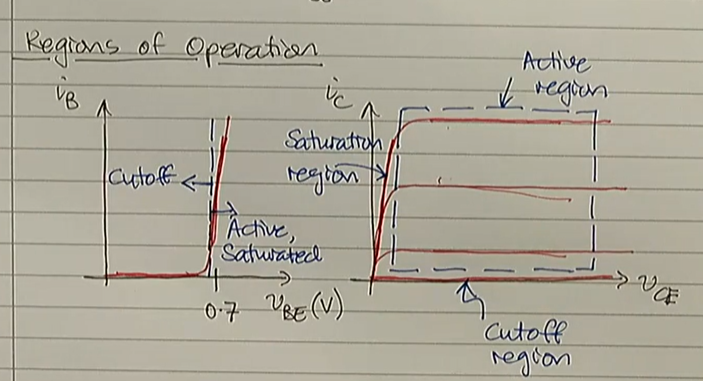 Regions of Operation
iB
Cutoff
Active,
Saturated
0.7
VBE (V)
iC
Active
region
Saturation
region
VCE
Cutoff
region